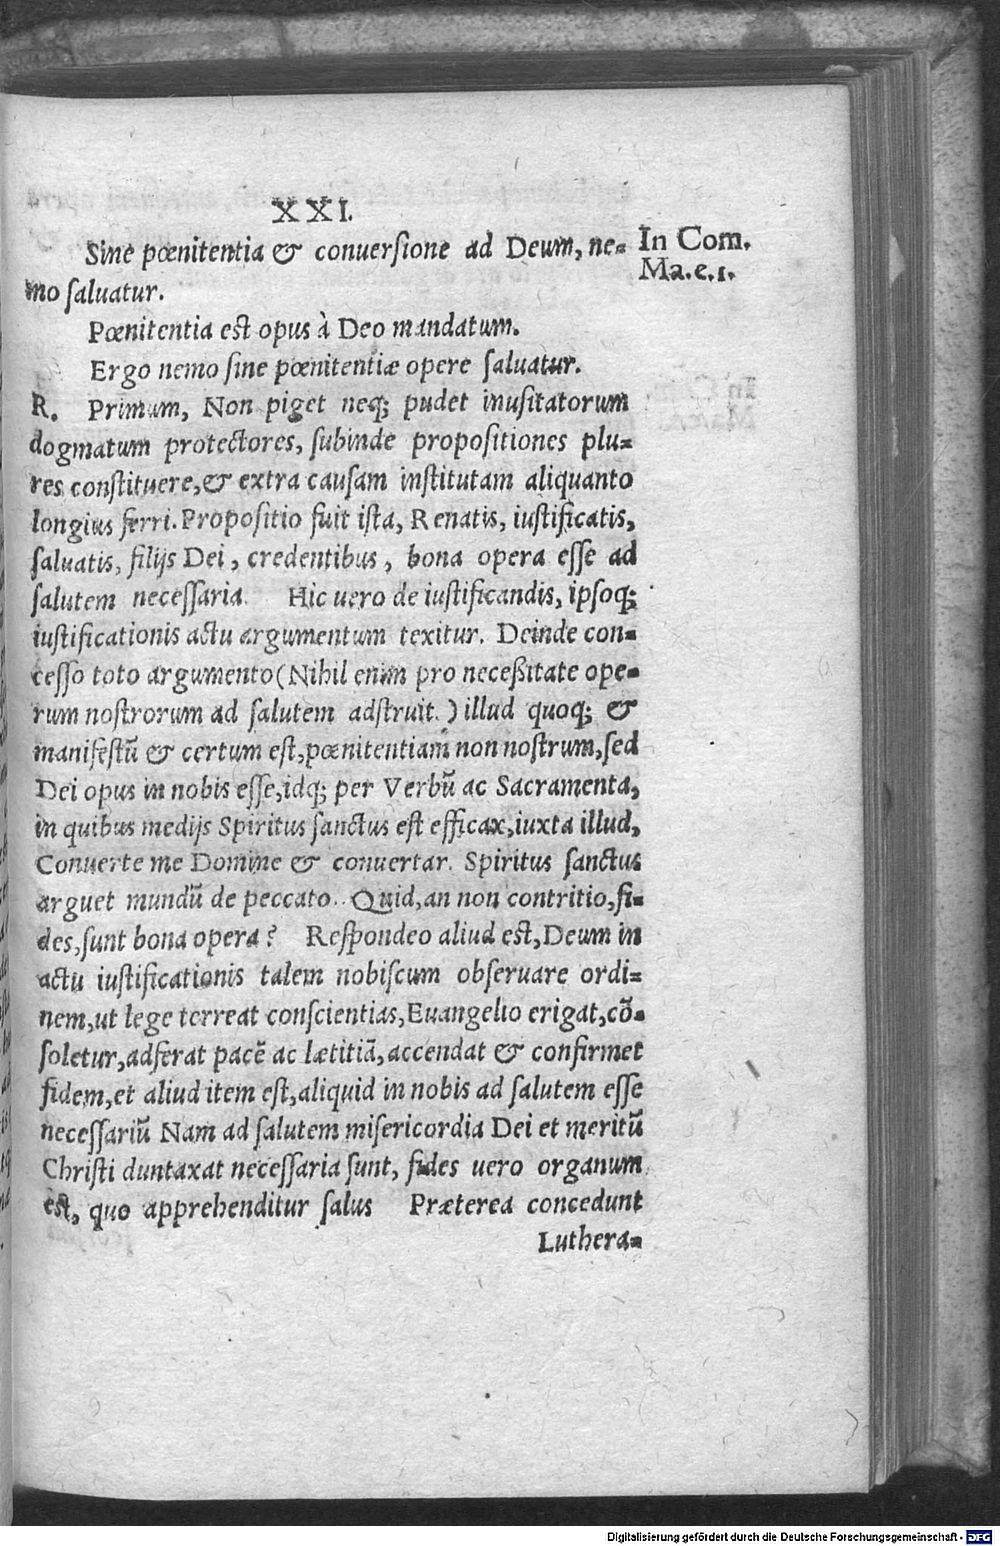 XXI.
Sine pœnitentia & conuersione ad Deum, ne-
mo saluatur.
In Com.
Ma.c.1.
Pœnitentia est opus à Deo mandatum.
Ergo nemo sine pœnitentiæ opere saluatur.
R. Primum, Non piget neq; pudet inusitatorum
dogmatum protectores, subinde propositiones plu-
res constituere, & extra causam institutam aliquanto
longius ferri. Propositio fuit ista, Renatis, iustificatis,
saluatis, filijs Dei, credentibus, bona opera esse ad
salutem necessaria. Hic uero de iustificandis, ipsoq;
iustificationis actu argumentum texitur. Deinde con-
cesso toto argumento (Nihil enim pro neceßitate ope-
rum nostrorum ad salutem adstruit.) illud quoq; &
manifestũ & certum est, pœnitentiam non nostrum, sed
Dei opus in nobis esse, idq; per Verbũ ac Sacramenta,
in quibus medijs Spiritus sanctus est efficax, iuxta illud,
Conuerte me Domine & conuertar. Spiritus sanctus
arguet mundũ de peccato. Quid, an non contritio, fi-
des, sunt bona opera? Respondeo aliud est, Deum in
actu iustificationis talem nobiscum obseruare ordi-
nem, ut lege terreat conscientias, Euangelio erigat, cõ-
soletur, adferat pacẽ ac lætitiã, accendat & confirmet
fidem, et aliud item est, aliquid in nobis ad salutem esse
necessariũ Nam ad salutem misericordia Dei et meritũ
Christi duntaxat necessaria sunt, fides uero organum
est, quo apprehenditur salus Præterea concedunt
Luthera-
Digitalisierung gefördert durch die Deutsche Forschungsgemeinschaft - DFG